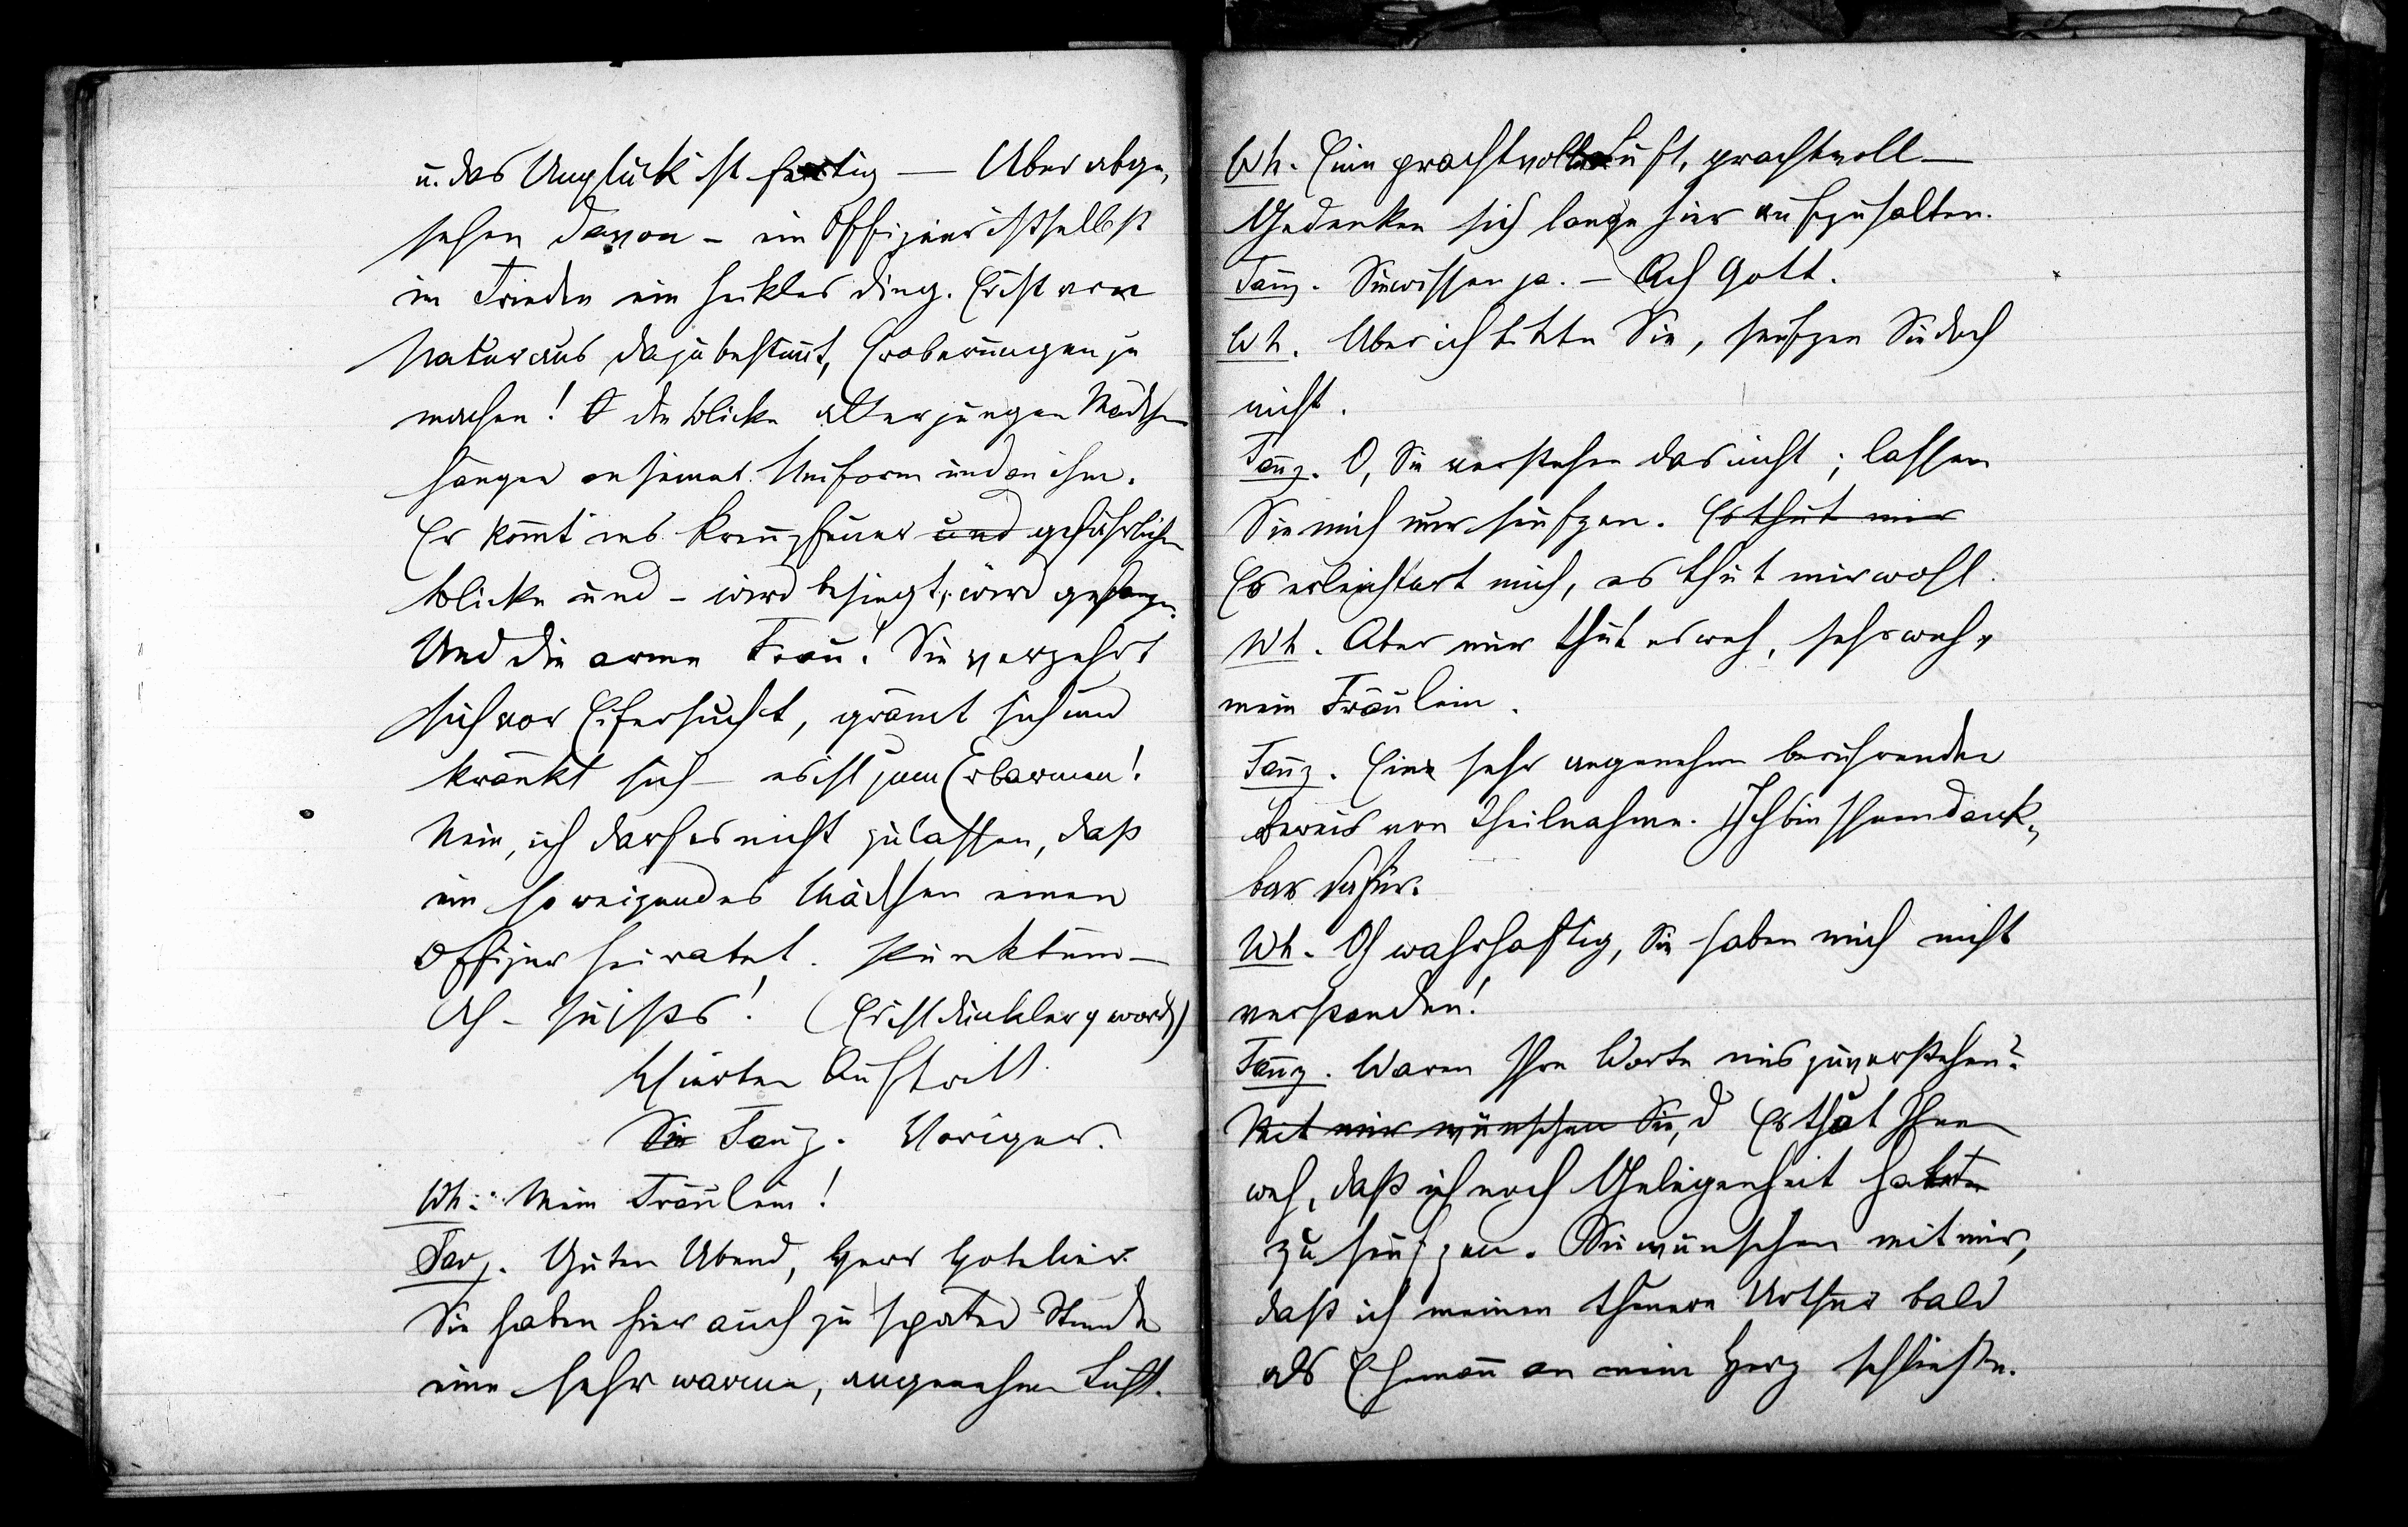 u. das Unglück ist fertig — Aber abge-
sehen davon – ein Offizier ist selbst
im Frieden ein heikles Ding. Er ist von
Natur aus dazu bestimt, Eroberungen zu
machen! O die Blicke aller jungen Mädchen
hängen an seiner Uniform und an ihm.
Er komt ins Kreuzfeuer und gefährlicher
Blicke und – wird besiegt, wird gefangen.
Und die arme Frau! Sie verzehrt
sich vor Eifersucht, grämt sich und
kränkt sich – es ist zum Erbarmen!
Nein, ich darf es nicht zulassen, daß
ein so reizendes Mädchen einen
Offizier heiratet. Punktum –
Ah – (Er ist dunkler geworden)
Vierter Auftritt.
Die Tanz. Voriger.
Wh: Mein Fräulein!
Tanz. Guten Abend, Herr Hotelier.
Sie haben hier auch zu später Stunde
eine sehr warme, angenehme Luft.
Wh. Eine prachtvolle Luft, prachtvoll –
Gedenken sich lange hier aufzuhalten.
Tanz. Sie wissen ja. – Ach Gott.
Wh. Aber ich bitte Sie, seufzen Sie doch
nicht.
Tanz. O, Sie verstehen das nicht; lassen
Sie mich nur seufzen. Es thut mir
Es erleichtert mich, es thut mir wohl.
Wh. Aber mir thut es weh, sehr weh,
mein Fräulein.
Tanz. Eine sehr angenehm berührender
Beweis von Theilnahme. Ich bin Ihnen dank-
bar dafür.
Wh. Oh wahrhaftig, Sie haben mich nicht
verstanden!
Tanz. Waren Ihre Worte miszuverstehen?
Mit mir wünschen Sie, d Es that Ihnen
weh, daß ich noch Gelegenheit hatte
zu seufzen. Sie wünschen mit mir,
daß ich meinen theuern Arthur bald
als Ehemann an mein Herz schließe.